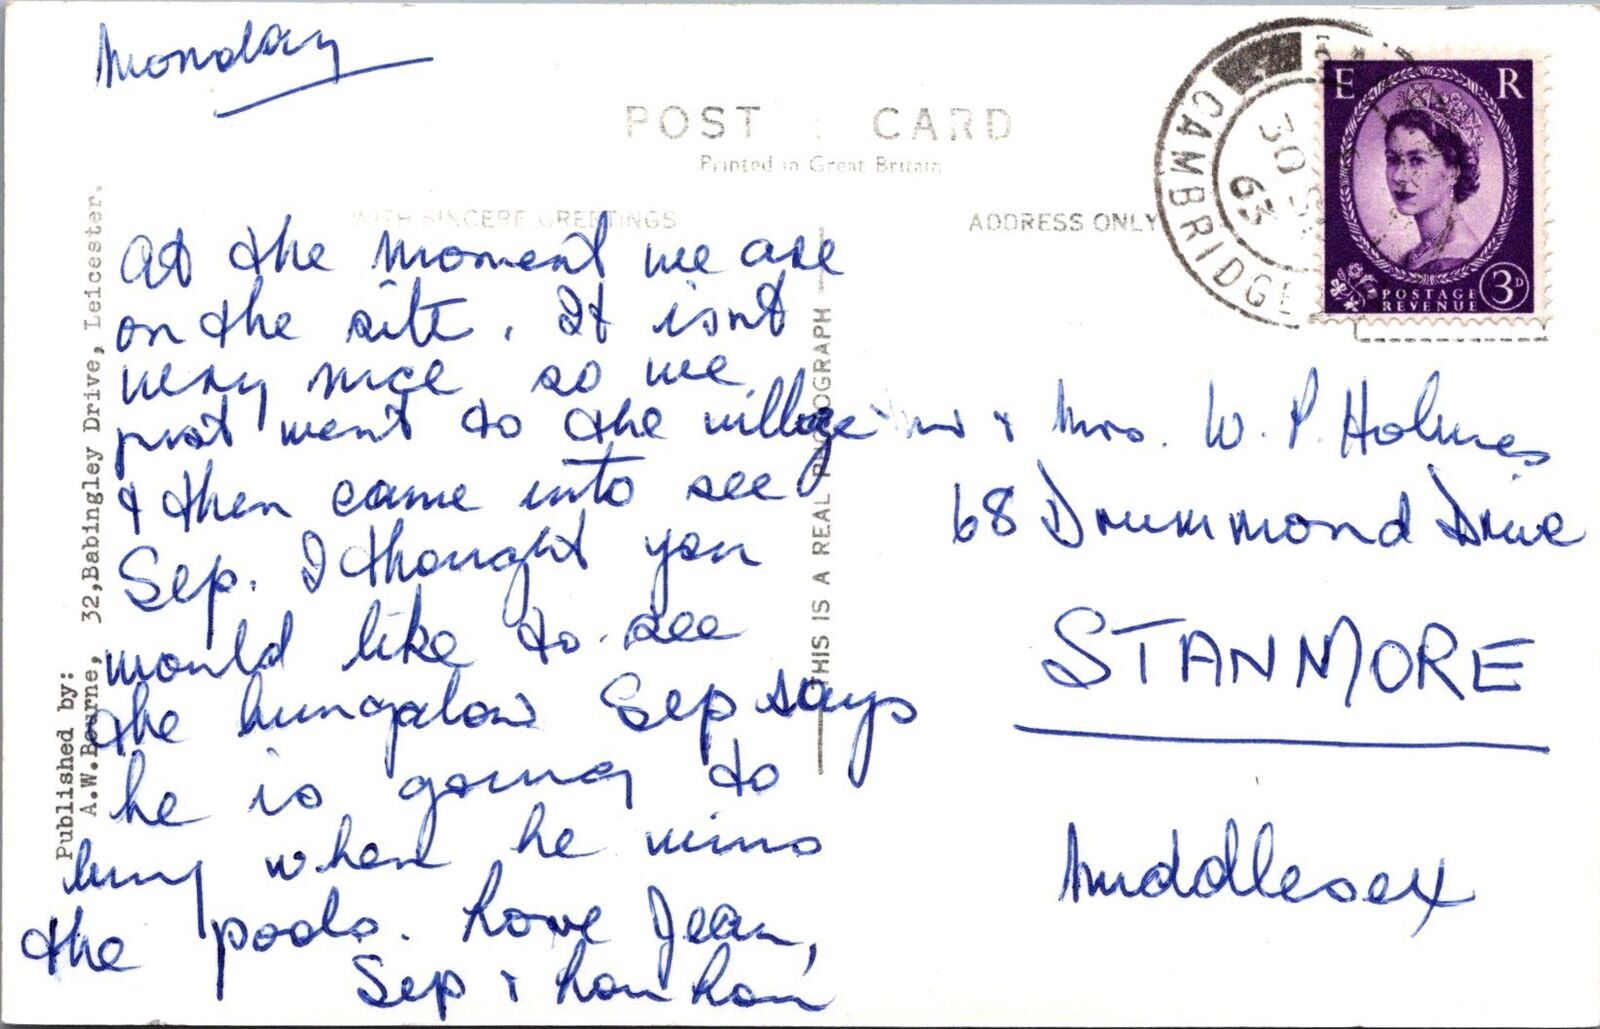 Monday
POST CARD
Printed in Great Britain
WITH SINCERE GREETINGS
ADDRESS ONLY
At the moment we are
on the site. It isnt
very nice so we
just went to the village
& then came into see
Sep. I thought you
would like to see
the bungalow Sep says
he is going to
buy when he wins
the pools. Love Jean,
Sep &
Mr & Mrs. W. P. Holmes
68 Drummond Drive
STANMORE
Middlesex
CAMBRIDGE
30 S
63
E R
POSTAGE
REVENUE
3D
THIS IS A REAL PHOTOGRAPH
Published by:
A.W.Bourne, 32, Babingley Drive, Leicester.